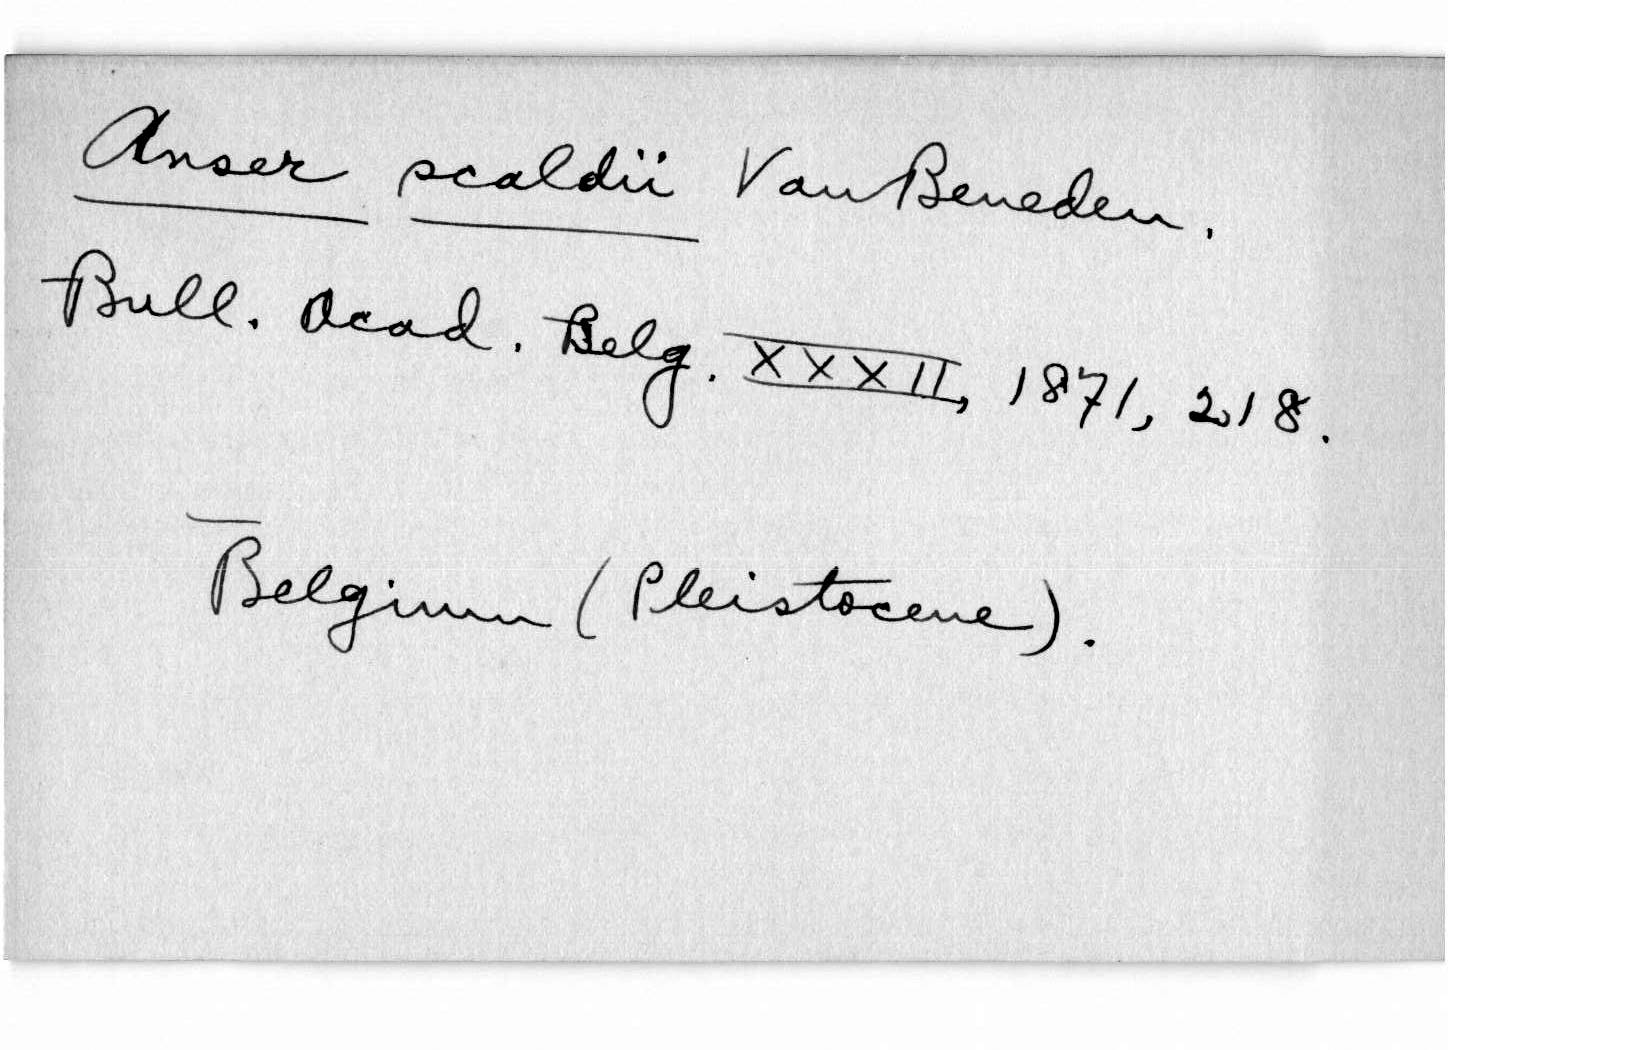 Anser scaldii Van Beneden.
Bull. Acad. Belg. XXXII, 1871, 218.
Belgium (Pleistocene).